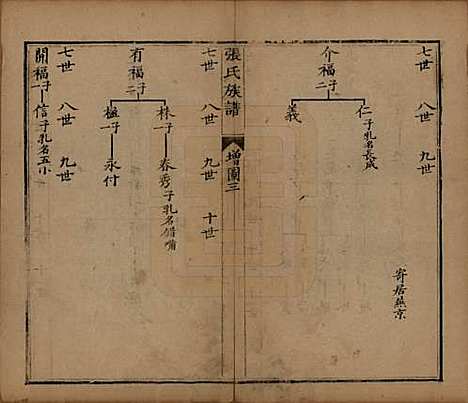 七世 八世 九世
介福 子二
仁 子乳名長成
義
寄居燕京
張氏族譜
增圖三
七世 八世 九世 十世
有福 子二
林 一子
春秀 子乳名錯嘴
一子
永付
七世 八世 九世
開福 一子
信 子乳名五小